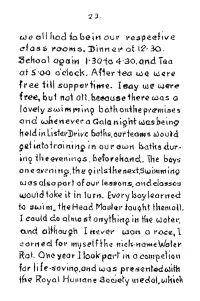 23.
we all had to be in our respective
class rooms. Dinner at 12-30.
School again 1-30 to 4-30, and Tea
at 5:00 o'clock. After tea we were
free till suppertime. I say we were
free, but not all, because there was a
lovely swimming bath on the premises
and whenever a Gala night was being
held in Lister Drive baths, our teams would
get into training in our own baths dur-
ing the evenings, beforehand. The boys
one evrning, the girls the next, Swimming
was also part of our lessons, and classes
would take it in turn. Every boy learned
to swim, the Head Master taught them all.
I could do almost anything in the water,
and although I never won a race, I
earned for myself the nick-name Water
Rat. One year I took part in a competion
for life-saving, and was presented with
the Royal Humane Society medal, which